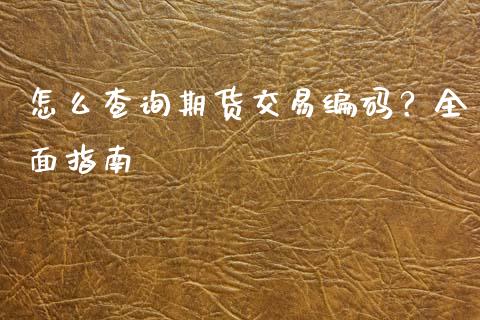 怎么查询期货交易编码？全
面指南